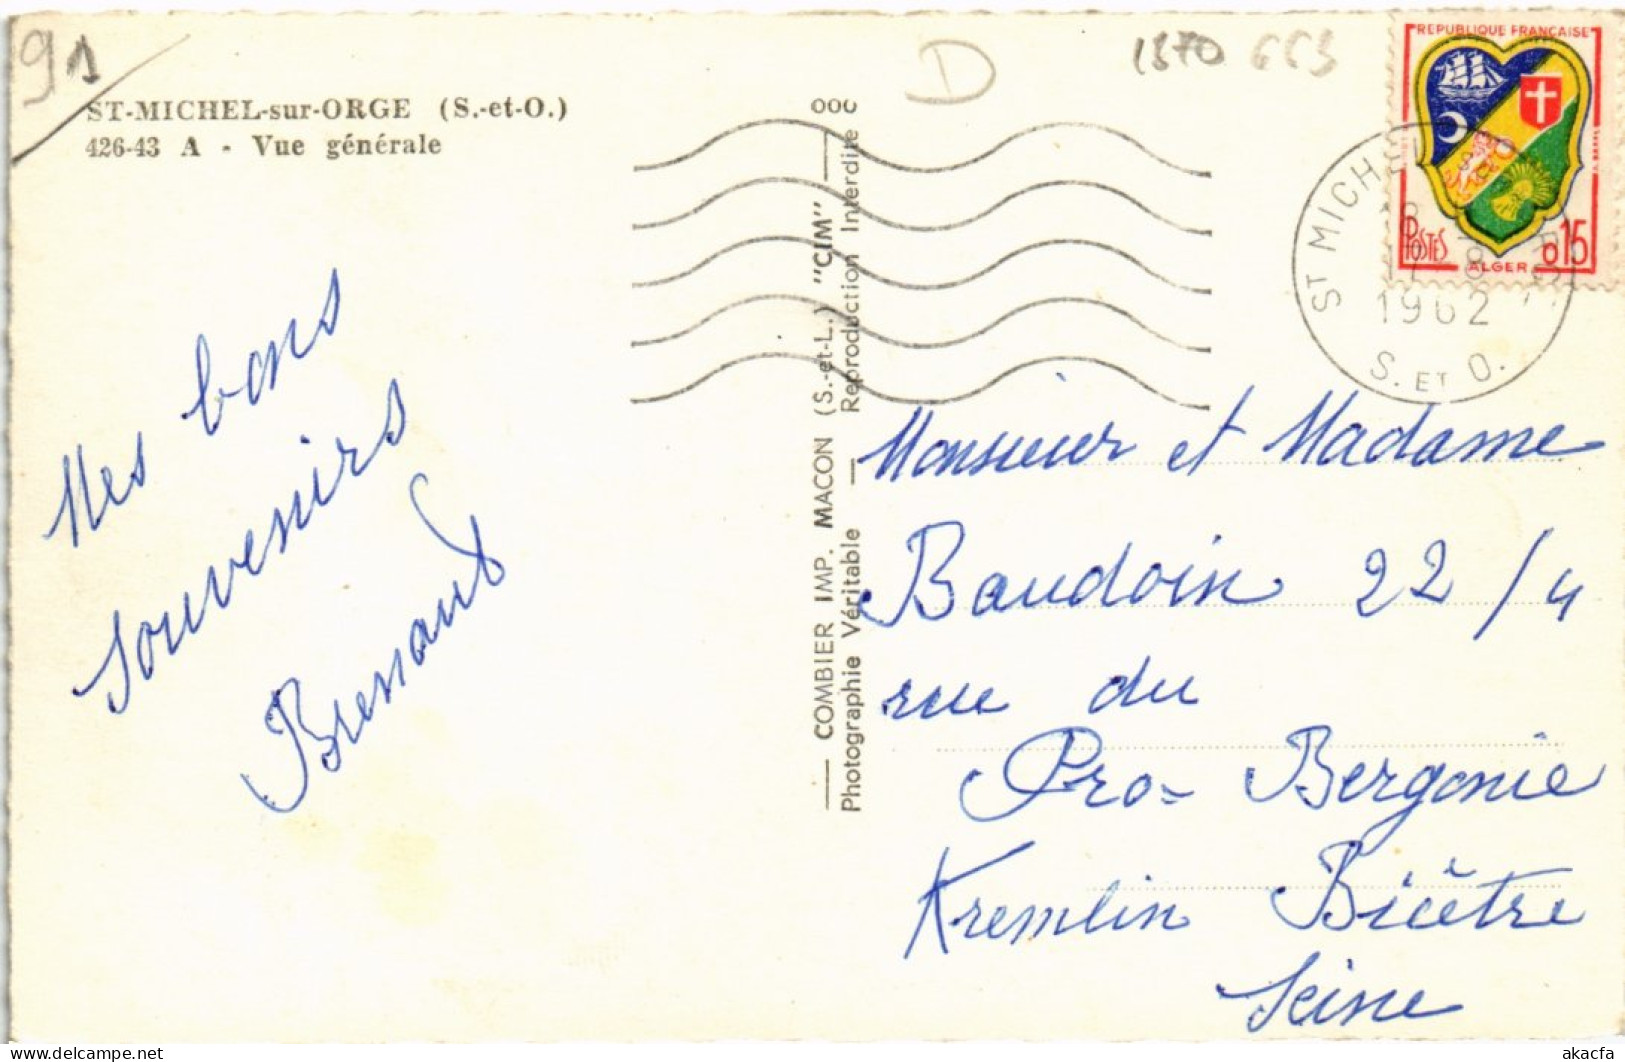 91
ST-MICHEL-sur-ORGE (S.-et-O.)
426-43 A - Vue générale
D
1370 663
REPUBLIQUE FRANÇAISE
POSTES
0,15
ALGER
ST MICHEL
17 - 8
1962
S. ET O.
000
COMBIER IMP. MACON (S.-et-L.) "CIM"
Photographie Véritable — Reproduction Interdite
Mes bons
souvenirs
Monsieur et Madame
Baudoin 22/4
rue du
Pro- Bergonie
Kremlin Bicêtre
Seine
akacfa
delcampe.net